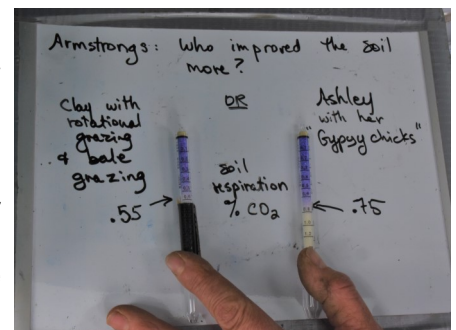 Armstrongs: Who improved the soil
more?
Clay with
rotational
grazing
& bale
grazing
.55
OR
soil
respiration
% CO2
Ashley
with her
"Gypsy chicks"
.75